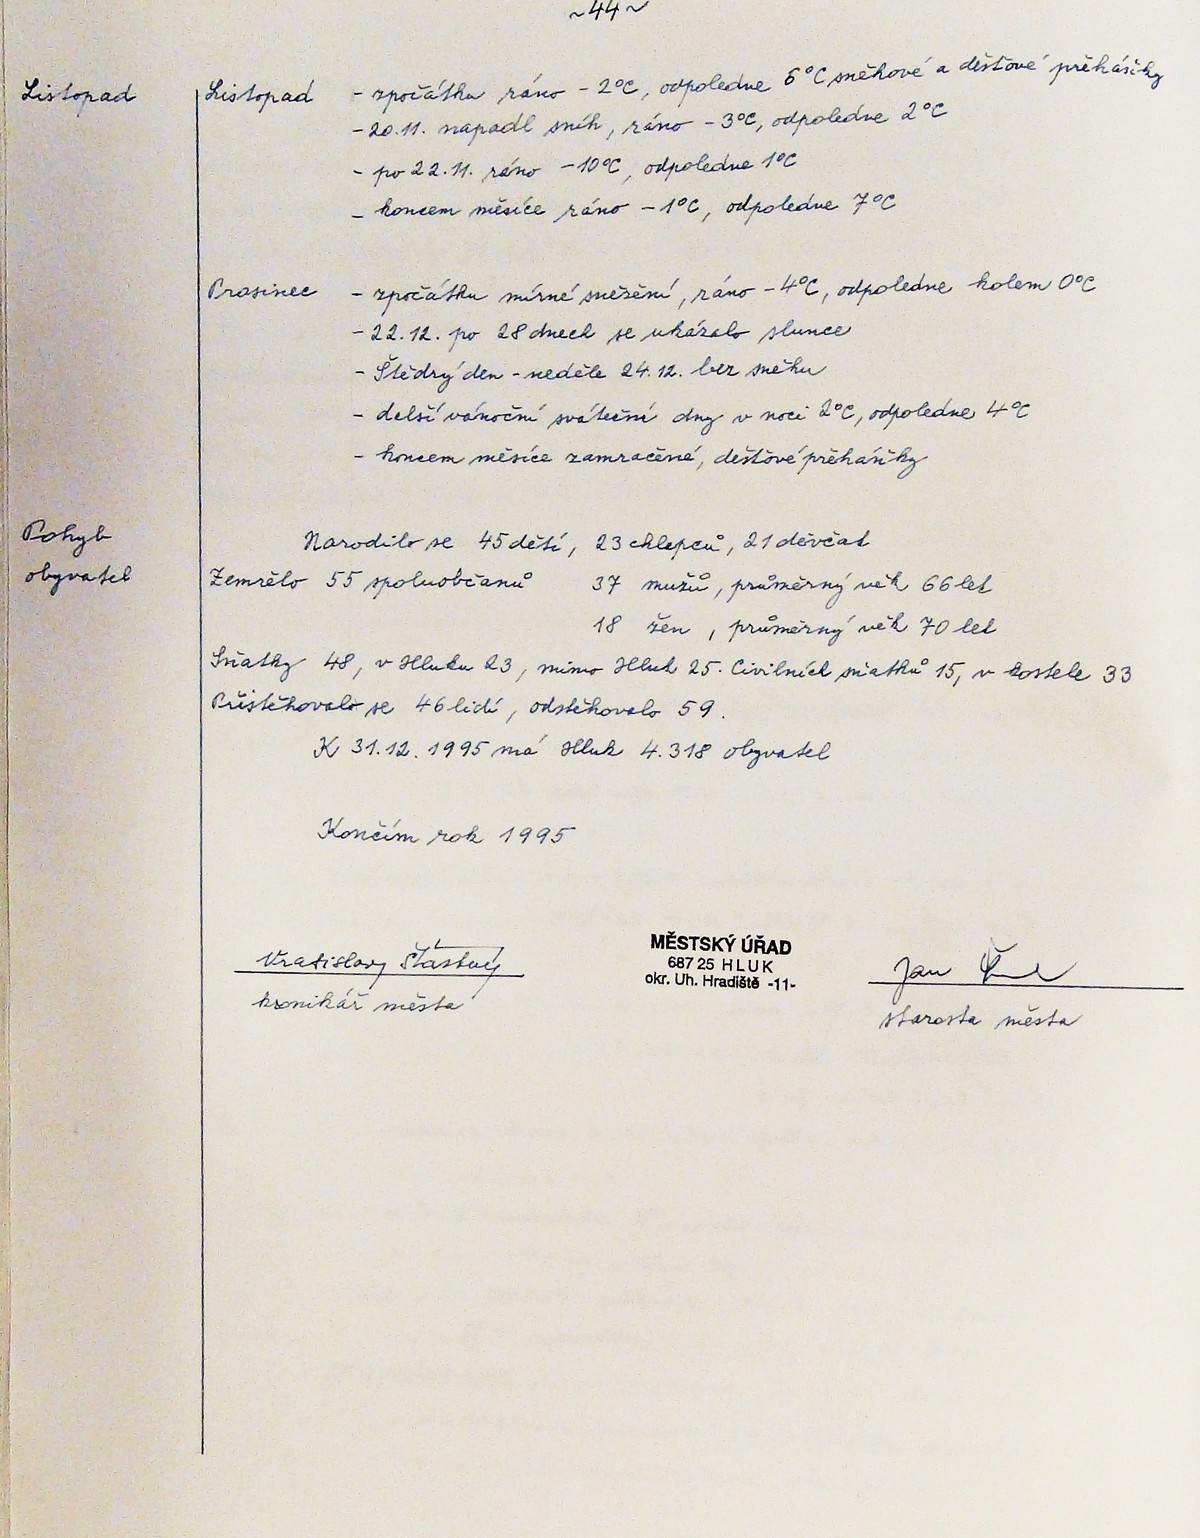 ~44~
Listopad
Listopad - zpočátku ráno -2°C, odpoledne 5°C sněhové a dešťové přeháňky
- 20.11. napadl sníh, ráno -3°C, odpoledne 2°C
- po 22.11. ráno -10°C, odpoledne 1°C
- koncem měsíce ráno -1°C, odpoledne 7°C
Prosinec - zpočátku mírné sněžení, ráno -4°C, odpoledne kolem 0°C
- 22.12. po 28 dnech se ukázalo slunce
- Štědrý den - neděle 24.12. bez sněhu
- delší vánoční sváteční dny v noci 2°C, odpoledne 4°C
- koncem měsíce zamračené, dešťové přeháňky
Pohyb
obyvatel
Narodilo se 45 dětí, 23 chlapců, 21 děvčat
Zemřelo 55 spoluobčanů 37 mužů, průměrný věk 66 let
18 žen, průměrný věk 70 let
Sňatky 48, v Hluku 23, mimo Hluk 25. Civilních sňatků 15, v kostele 33
Přistěhovalo se 46 lidí, odstěhovalo 59.
K 31.12.1995 má Hluk 4.318 obyvatel
Končím rok 1995
Vratislav Šťastný
kronikář města
MĚSTSKÝ ÚŘAD
687 25 HLUK
okr. Uh. Hradiště -11-
Jan
starosta města